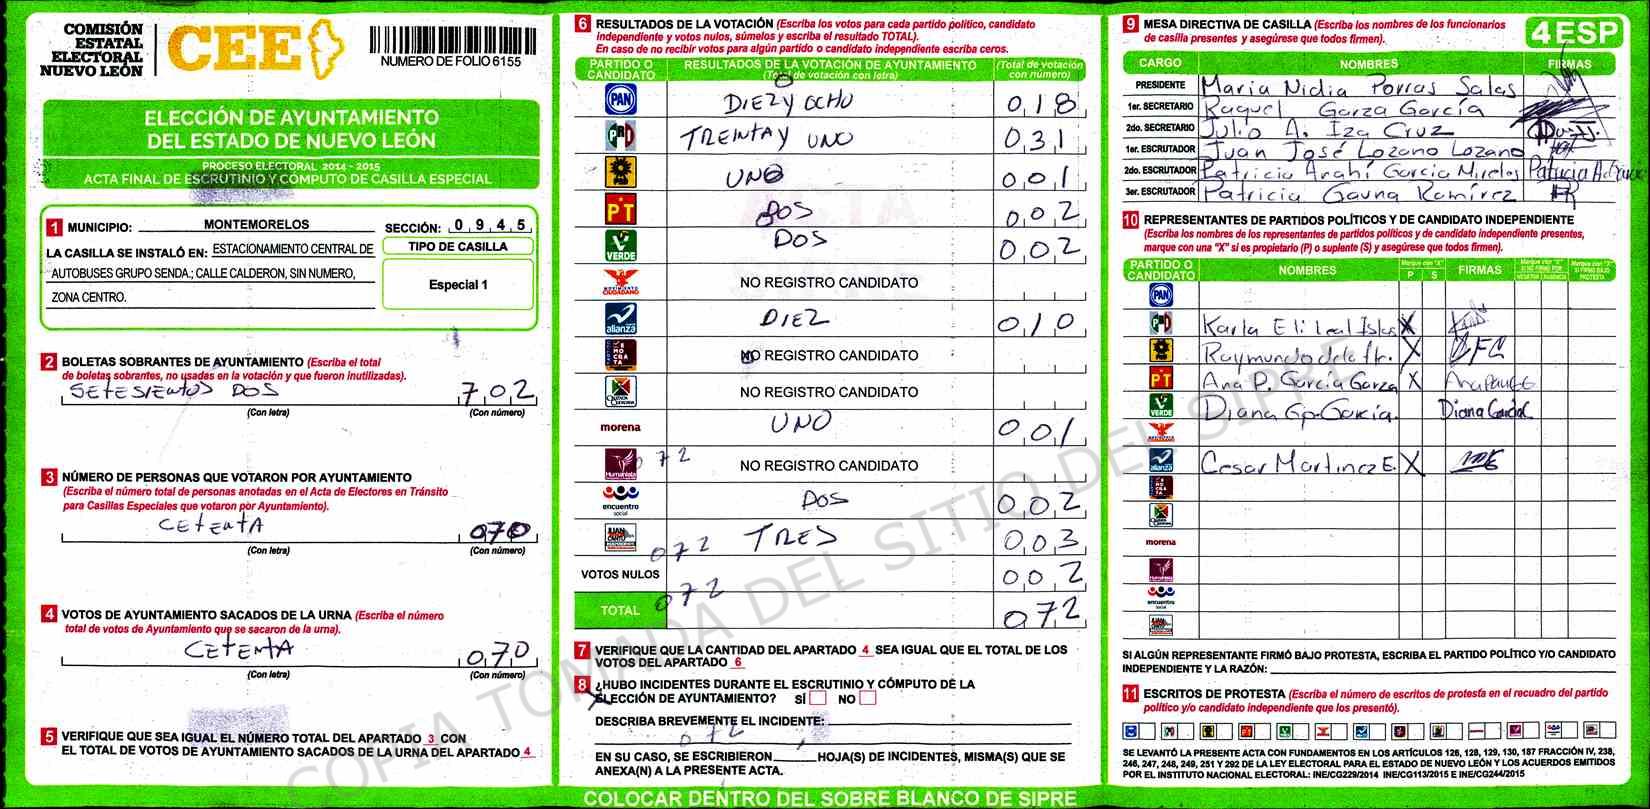 COMISIÓN
ESTATAL
ELECTORAL
NUEVO LEÓN
CEE
NUMERO DE FOLIO 6155
ELECCIÓN DE AYUNTAMIENTO
DEL ESTADO DE NUEVO LEÓN
PROCESO ELECTORAL 2014 - 2015
ACTA FINAL DE ESCRUTINIO Y CÓMPUTO DE CASILLA ESPECIAL
1 MUNICIPIO: MONTEMORELOS SECCIÓN: 0 9 4 5
LA CASILLA SE INSTALÓ EN: ESTACIONAMIENTO CENTRAL DE
AUTOBUSES GRUPO SENDA.; CALLE CALDERON, SIN NUMERO,
ZONA CENTRO.
TIPO DE CASILLA
Especial 1
2 BOLETAS SOBRANTES DE AYUNTAMIENTO (Escriba el total
de boletas sobrantes, no usadas en la votación y que fueron inutilizadas).
SETESIENTOS DOS 7 0 2
(Con letra) (Con número)
3 NÚMERO DE PERSONAS QUE VOTARON POR AYUNTAMIENTO
(Escriba el número total de personas anotadas en el Acta de Electores en Tránsito
para Casillas Especiales que votaron por Ayuntamiento).
CETENTA 070
(Con letra) (Con número)
4 VOTOS DE AYUNTAMIENTO SACADOS DE LA URNA (Escriba el número
total de votos de Ayuntamiento que se sacaron de la urna).
CETENTA 070
(Con letra) (Con número)
5 VERIFIQUE QUE SEA IGUAL EL NÚMERO TOTAL DEL APARTADO 3 CON
EL TOTAL DE VOTOS DE AYUNTAMIENTO SACADOS DE LA URNA DEL APARTADO 4
6 RESULTADOS DE LA VOTACIÓN (Escriba los votos para cada partido político, candidato
independiente y votos nulos, súmelos y escriba el resultado TOTAL).
En caso de no recibir votos para algún partido o candidato independiente escriba ceros.
PARTIDO O CANDIDATO RESULTADOS DE LA VOTACIÓN DE AYUNTAMIENTO (Total de votación con letra) (Total de votación con número)
PAN DIEZ Y OCHO 0 1 8
PRD TREINTA Y UNO 0 3 1
PRD UNO 0 0 1
PT DOS 0 0 2
VERDE DOS 0 0 2
MOVIMIENTO CIUDADANO NO REGISTRO CANDIDATO
alianza DIEZ 0 1 0
NO REGISTRO CANDIDATO
NO REGISTRO CANDIDATO
morena UNO 0 0 1
Humanista 072 NO REGISTRO CANDIDATO
encuentro social DOS 0 0 2
072 TRES 0 0 3
VOTOS NULOS 0 0 2
TOTAL 072 0 7 2
7 VERIFIQUE QUE LA CANTIDAD DEL APARTADO 4 SEA IGUAL QUE EL TOTAL DE LOS
VOTOS DEL APARTADO 6
8 ¿HUBO INCIDENTES DURANTE EL ESCRUTINIO Y CÓMPUTO DE LA
ELECCIÓN DE AYUNTAMIENTO? SÍ NO
DESCRIBA BREVEMENTE EL INCIDENTE:
072
EN SU CASO, SE ESCRIBIERON HOJA(S) DE INCIDENTES, MISMA(S) QUE SE
ANEXA(N) A LA PRESENTE ACTA.
COLOCAR DENTRO DEL SOBRE BLANCO DE SIPRE
9 MESA DIRECTIVA DE CASILLA (Escriba los nombres de los funcionarios
de casilla presentes y asegúrese que todos firmen).
4 ESP
CARGO NOMBRES FIRMAS
PRESIDENTE Maria Nidia Porras Salas
1er. SECRETARIO Raquel Garza García
2do. SECRETARIO Julio A. Iza Cruz
1er. ESCRUTADOR Juan José Lozano Lozano
2do. ESCRUTADOR Patricia Arahí Garcia Mireles Patricia
3er. ESCRUTADOR Patricia Gauna Ramírez
10 REPRESENTANTES DE PARTIDOS POLÍTICOS Y DE CANDIDATO INDEPENDIENTE
(Escriba los nombres de los representantes de partidos políticos y de candidato independiente presentes,
marque con una "X" si es propietario (P) o suplente (S) y asegúrese que todos firmen).
PARTIDO O CANDIDATO NOMBRES P S FIRMAS
PAN
Karla Eli Leal Islas X
Raymundo de la X
PT Ana P. Garcia Garza X
VERDE Diana Gp. Garcia.
alianza Cesar Martinez E. X
morena
SI ALGÚN REPRESENTANTE FIRMÓ BAJO PROTESTA, ESCRIBA EL PARTIDO POLÍTICO Y/O CANDIDATO
INDEPENDIENTE Y LA RAZÓN:
11 ESCRITOS DE PROTESTA (Escriba el número de escritos de protesta en el recuadro del partido
político y/o candidato independiente que los presentó).
SE LEVANTÓ LA PRESENTE ACTA CON FUNDAMENTOS EN LOS ARTÍCULOS 126, 128, 129, 130, 187 FRACCIÓN IV, 238,
246, 247, 248, 249, 251 Y 292 DE LA LEY ELECTORAL PARA EL ESTADO DE NUEVO LEÓN Y LOS ACUERDOS EMITIDOS
POR EL INSTITUTO NACIONAL ELECTORAL: INE/CG229/2014 INE/CG113/2015 E INE/CG244/2015
COPIA TOMADA DEL SITIO DEL SIPRE